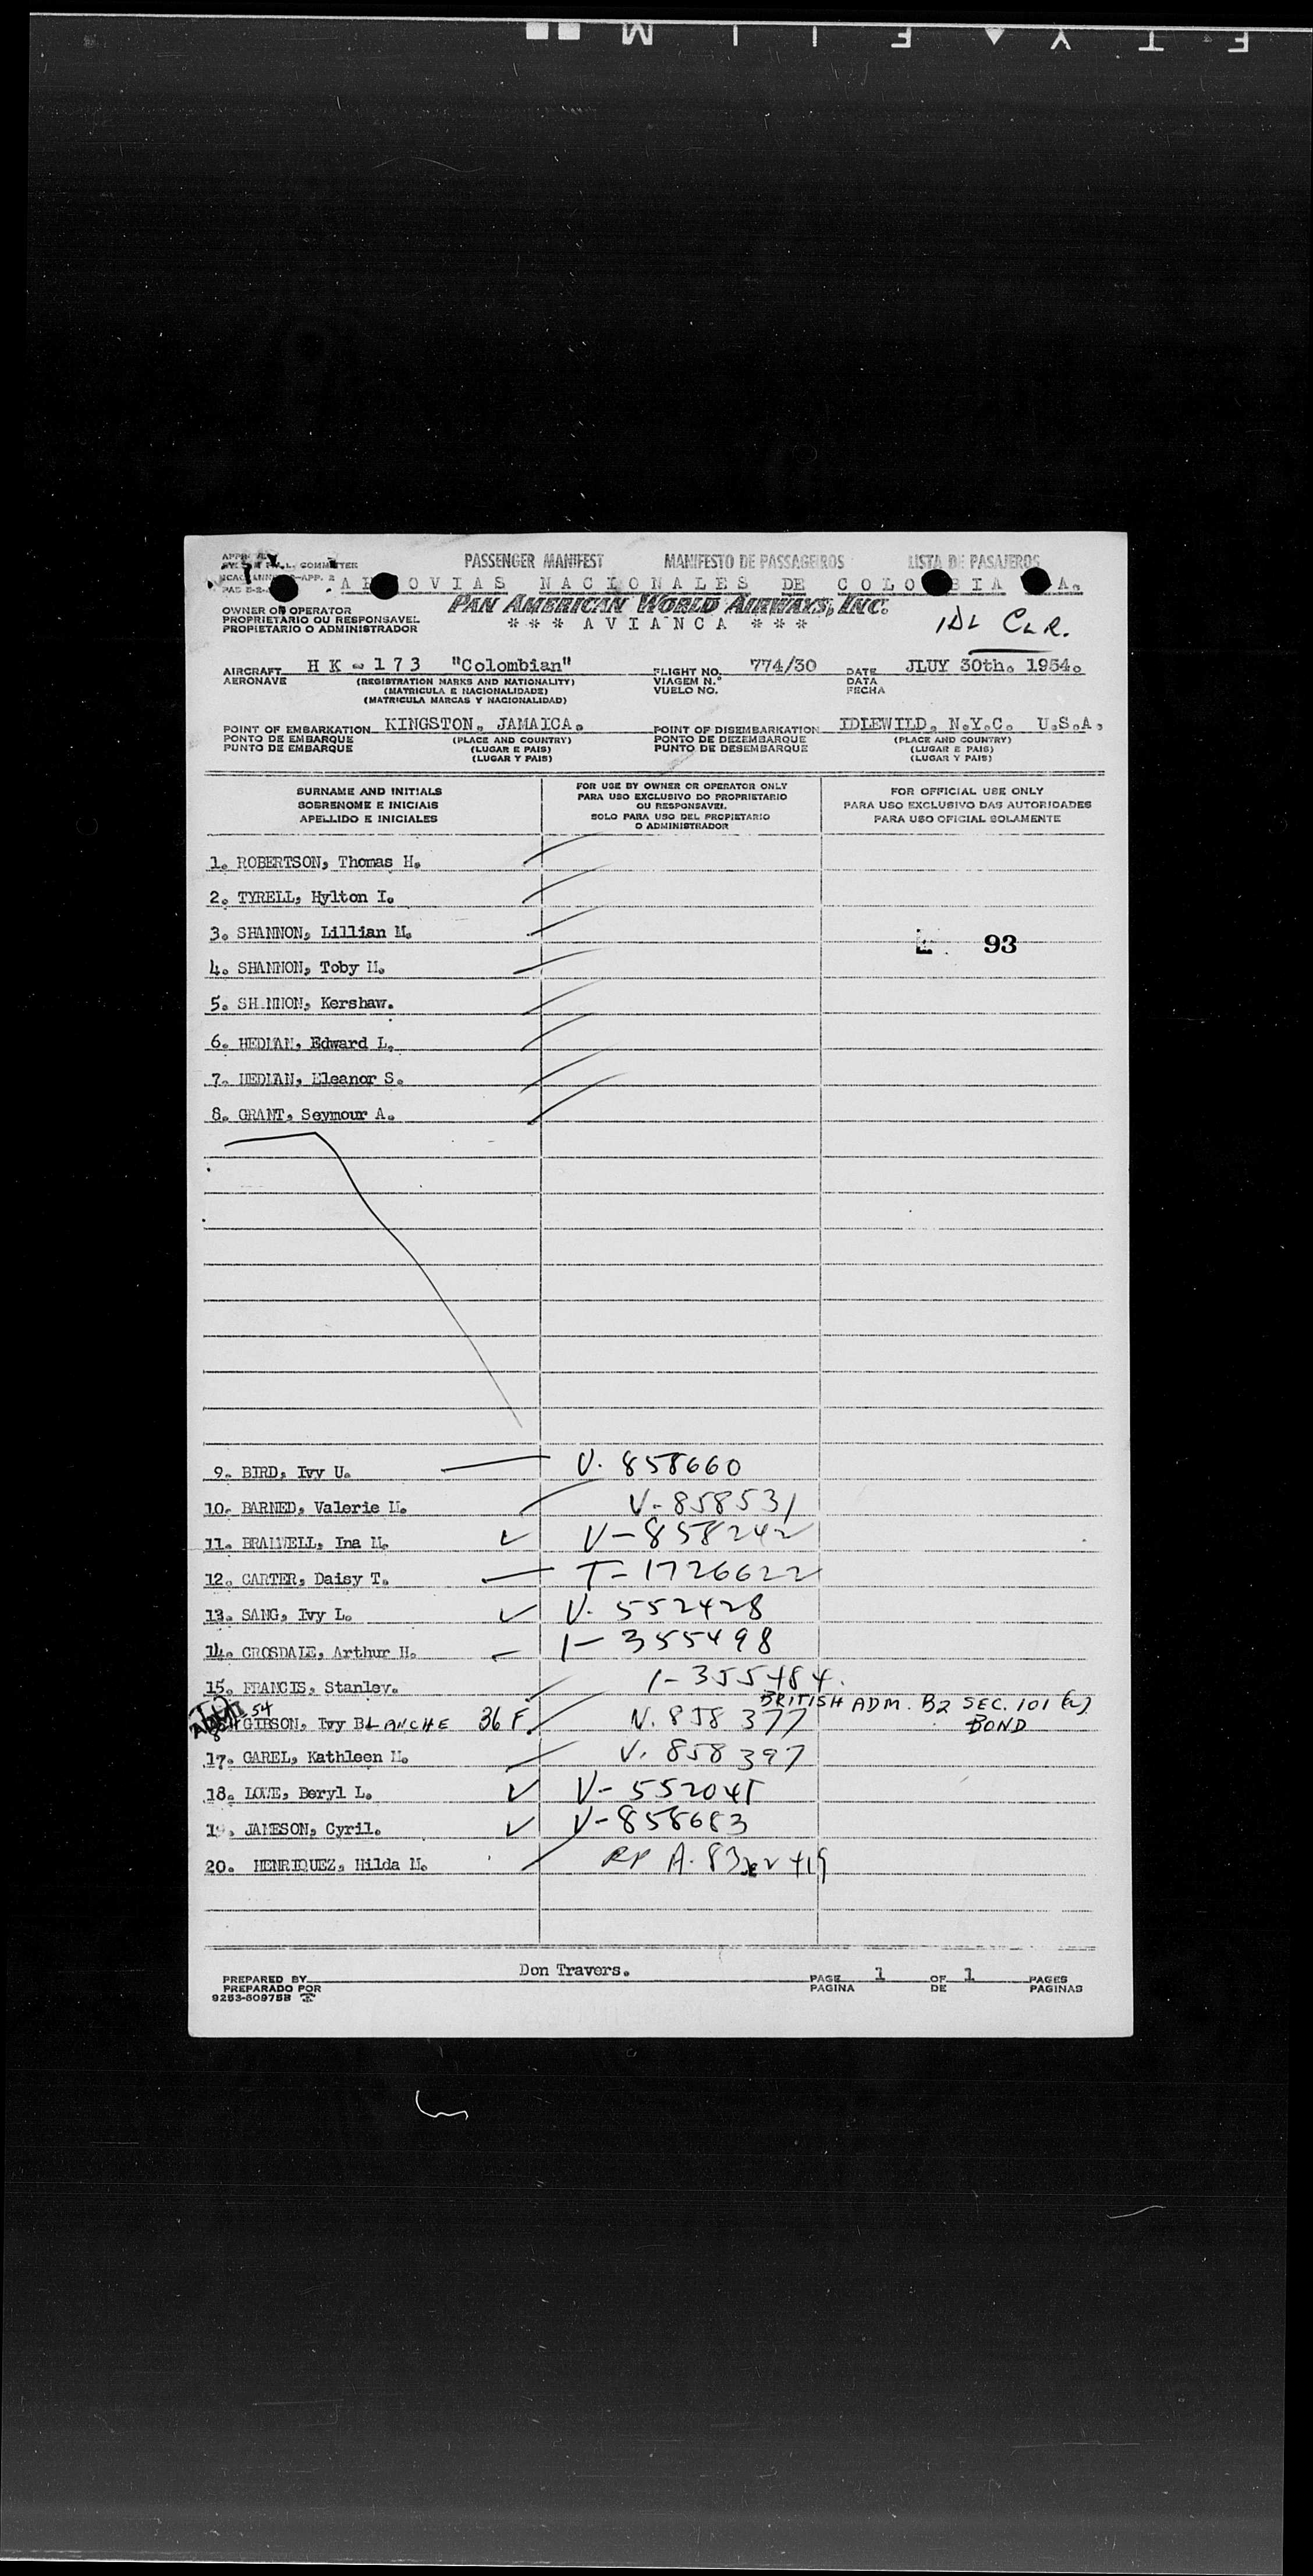 PASSENGER MANIFEST MANIFESTO DE PASSAGEIROS LISTA DE PASAJEROS
NACIONALES DE
PAN AMERICAN WORLD AIRWAYS, INC.
* * * AVIANCA * * *
IDL CLR.
OWNER OR OPERATOR
PROPRIETARIO OU RESPONSAVEL
PROPIETARIO O ADMINISTRADOR
AIRCRAFT HK-173 "Colombian" FLIGHT NO. 774/30 DATE JLUY 30th. 1954.
AERONAVE (REGISTRATION MARKS AND NATIONALITY) VIAGEM N.° DATA
(MATRICULA E NACIONALIDADE) VUELO NO. FECHA
(MATRICULA MARCAS Y NACIONALIDAD)
POINT OF EMBARKATION KINGSTON, JAMAICA. POINT OF DISEMBARKATION IDLEWILD, N.Y.C. U.S.A.
PONTO DE EMBARQUE (PLACE AND COUNTRY) PONTO DE DEZEMBARQUE (PLACE AND COUNTRY)
PUNTO DE EMBARQUE (LUGAR E PAIS) PUNTO DE DESEMBARQUE (LUGAR E PAIS)
(LUGAR Y PAIS) (LUGAR Y PAIS)
SURNAME AND INITIALS
SOBRENOME E INICIAIS
APELLIDO E INICIALES
FOR USE BY OWNER OR OPERATOR ONLY
PARA USO EXCLUSIVO DO PROPRIETARIO
OU RESPONSAVEL
SOLO PARA USO DEL PROPIETARIO
O ADMINISTRADOR
FOR OFFICIAL USE ONLY
PARA USO EXCLUSIVO DAS AUTORIDADES
PARA USO OFICIAL SOLAMENTE
1. ROBERTSON, Thomas H.
2. TYRELL, Hylton I.
3. SHANNON, Lillian M.
93
4. SHANNON, Toby M.
5. SH NNON, Kershaw.
6. HEDMAN, Edward L.
7. HEDMAN, Eleanor S.
8. GRANT, Seymour A.
9. BIRD, Ivy U. V. 858660
10. BARNED, Valerie M. V-858531
11. BRAMWELL, Ina M. V-858242
12. CARTER, Daisy T. T-1726622
13. SANG, Ivy L. V. 552428
14. CROSDALE, Arthur H. I-355498
15. FRANCIS, Stanley. I-355484.
54 BRITISH ADM. B2 SEC. 101
GIBSON, Ivy BLANCHE 36 F. V. 858 377 BOND
17. GAREL, Kathleen M. V. 858397
18. LOWE, Beryl L. V-552045
19. JAMESON, Cyril. V-858683
20. HENRIQUEZ, Hilda M. RP
PREPARED BY Don Travers. PAGE 1 OF 1 PAGES
PREPARADO POR PAGINA DE PAGINAS
9253-60975B